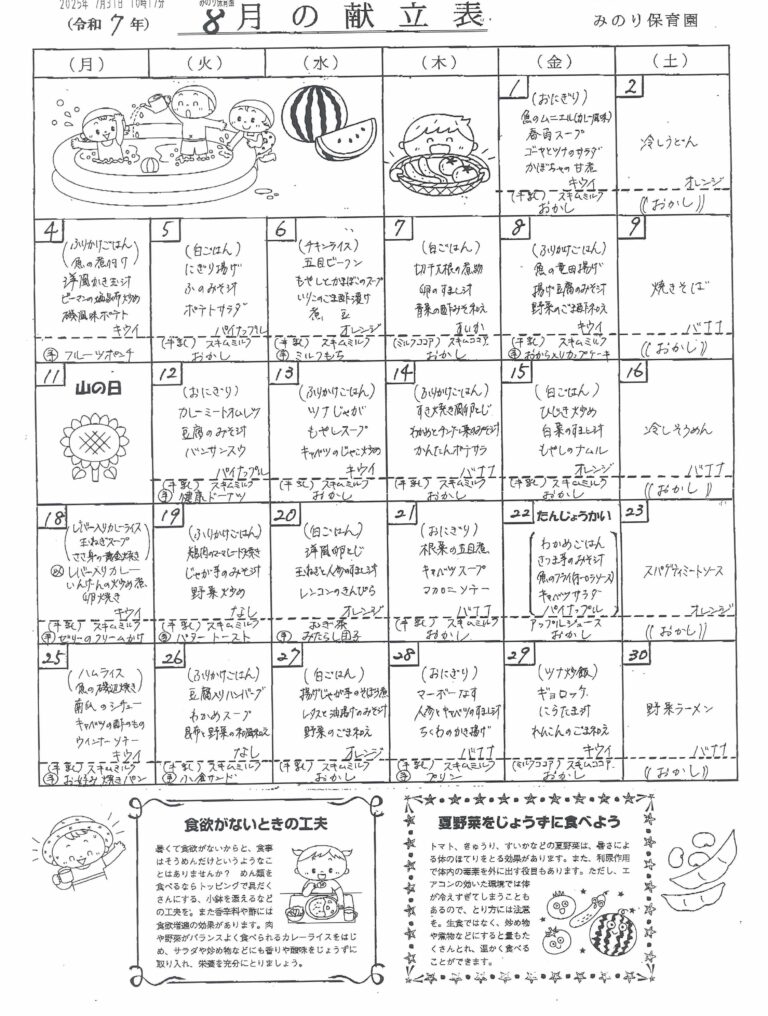 2025年 7月31日 10時17分
みのり保育園
(令和 7 年)
8月の献立表
みのり保育園
(月) (火) (水) (木) (金) (土)
1
(おにぎり)
魚のムニエル(カレー風味)
春雨スープ
ゴーヤとツナのサラダ
かぼちゃの甘煮
キウイ
(牛乳) スキムミルク
おかし
2
冷しうどん
オレンジ
((おかし))
4
(ふりかけごはん)
魚の煮付け
洋風かき玉汁
ピーマンの塩昆布炒め
磯風味ポテト
キウイ
手 フルーツポンチ
5
(白ごはん)
にぎり揚げ
ふのみそ汁
ポテトサラダ
パイナップル
(牛乳) スキムミルク
おかし
6
(チキンライス)
五目ビーフン
もやしとかまぼこのスープ
いりこのごま酢漬け
煮豆
オレンジ
(牛乳) スキムミルク
手 ミルクもち
7
(白ごはん)
切干大根の煮物
卵のすまし汁
青菜の酢みそ和え
すいか
(ミルクココア) スキムココア
おかし
8
(ふりかけごはん)
魚の竜田揚げ
揚げ豆腐のみそ汁
野菜のごま酢和え
キウイ
(牛乳) スキムミルク
手 おから入りカップケーキ
9
焼きそば
バナナ
((おかし))
11
山の日
12
(おにぎり)
カレーミートオムレツ
豆腐のみそ汁
バンサンスウ
パイナップル
(牛乳) スキムミルク
手 健康ドーナツ
13
(ふりかけごはん)
ツナじゃが
もやしスープ
キャベツのじゃこ炒め
キウイ
(牛乳) スキムミルク
おかし
14
(ふりかけごはん)
すき焼き風卵とじ
かんたんポテサラ
バナナ
(牛乳) スキムミルク
おかし
15
(白ごはん)
ひじき炒め
白菜のすまし汁
もやしのナムル
オレンジ
(牛乳) スキムミルク
おかし
16
冷しそうめん
バナナ
((おかし))
18
レバー入りカレーライス
玉ねぎスープ
ささ身の黄金焼き
レバー入りカレー
いんげんの炒め煮
卵焼き
キウイ
(牛乳) スキムミルク
手 ゼリーのクリームがけ
19
(ふりかけごはん)
鶏肉のマーマレード焼き
じゃが芋のみそ汁
野菜炒め
なし
(牛乳) スキムミルク
手 バタートースト
20
(白ごはん)
洋風卵とじ
玉ねぎと人参のすまし汁
レンコンのきんぴら
オレンジ
むぎ茶
手 みたらし団子
21
(おにぎり)
根菜の五目煮
キャベツスープ
マカロニソテー
バナナ
(牛乳) スキムミルク
おかし
22 たんじょうかい
わかめごはん
さつま芋のみそ汁
魚のフライ(オーロラソース)
キャベツサラダ
パイナップル
アップルジュース
おかし
23
スパゲティミートソース
オレンジ
((おかし))
25
(ハムライス)
魚の磯辺焼き
南瓜のシチュー
キャベツの酢のもの
ウインナーソテー
キウイ
(牛乳) スキムミルク
手 お好み焼きパン
26
(ふりかけごはん)
豆腐入りハンバーグ
わかめスープ
昆布と野菜の和風和え
なし
(牛乳) スキムミルク
手 小倉サンド
27
(白ごはん)
揚げじゃが芋のそぼろ煮
レタスと油揚げのみそ汁
野菜のごま和え
オレンジ
(牛乳) スキムミルク
おかし
28
(おにぎり)
マーボーなす
人参とキャベツのすまし汁
ちくわのかき揚げ
バナナ
(牛乳) スキムミルク
手 プリン
29
(ツナ炒飯)
ギョロッケ
にらたま汁
れんこんのごま和え
キウイ
(ミルクココア) スキムココア
おかし
30
野菜ラーメン
バナナ
((おかし))
食欲がないときの工夫
暑くて食欲がないからと、食事
はそうめんだけというようなこ
とはありませんか? めん類
を食べるならトッピングで具だく
さんにする、小鉢を添えるなど
の工夫を。また香辛料や酢には
食欲増進の効果があります。肉
や野菜がバランスよく食べられるカレーライスをはじ
め、サラダや炒め物などにも香りや酸味をじょうずに
取り入れ、栄養を充分にとりましょう。
夏野菜をじょうずに食べよう
トマト、きゅうり、すいかなどの夏野菜は、暑さによ
る体のほてりをとる効果があります。また、利尿作用
で体内の毒素を外に出す役目もあります。ただし、エ
アコンの効いた環境では体
が冷えすぎてしまうことも
あるので、とり方には注意
を。生食ではなく、炒め物
や煮物などにすると量もた
くさんとれ、温かく食べる
ことができます。